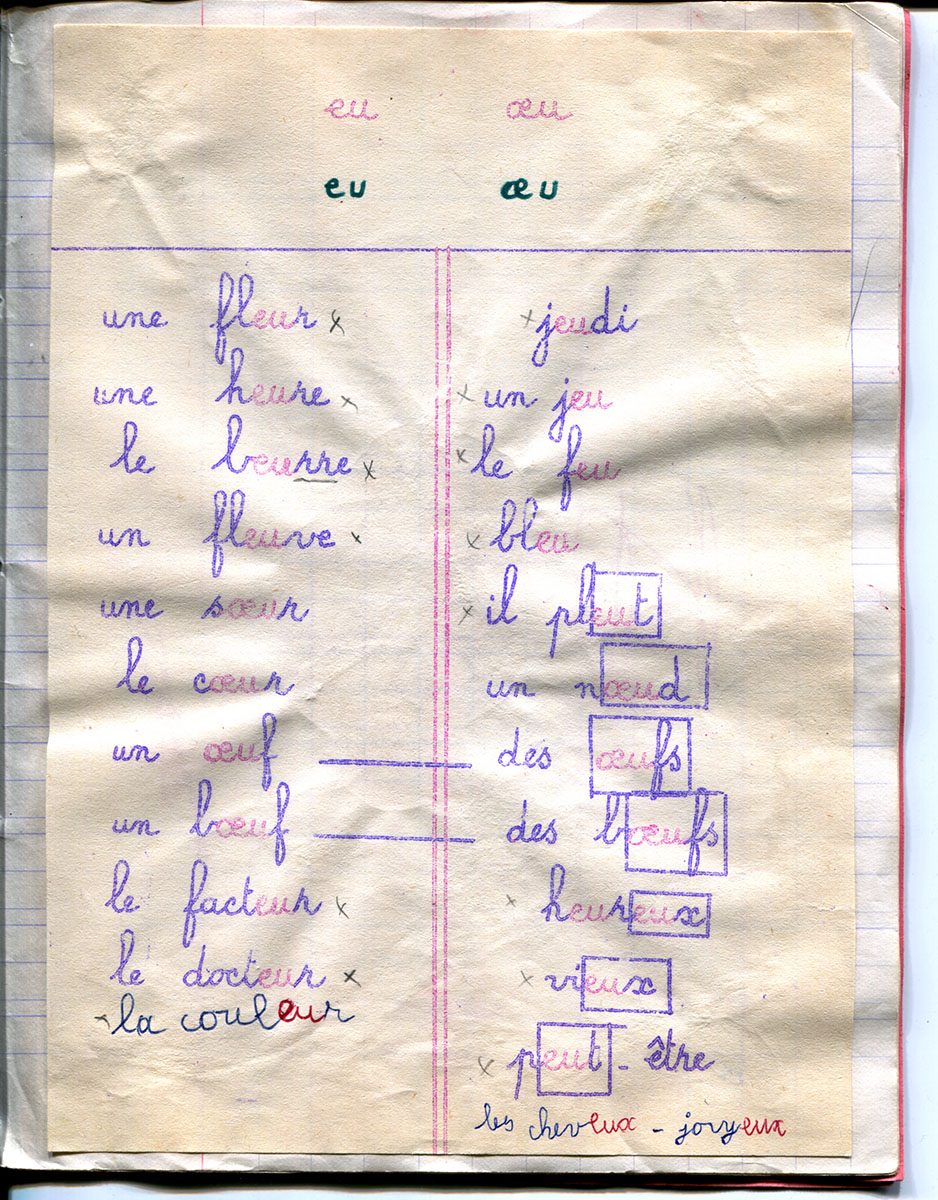 eu œu
eu œu
une fleur
une heure
le beurre
un fleuve
une sœur
le cœur
un œuf
un bœuf
le facteur
le docteur
la couleur
jeudi
un jeu
le feu
bleu
il pleut
un nœud
des œufs
des bœufs
heureux
vieux
peut-être
les cheveux - joyeux